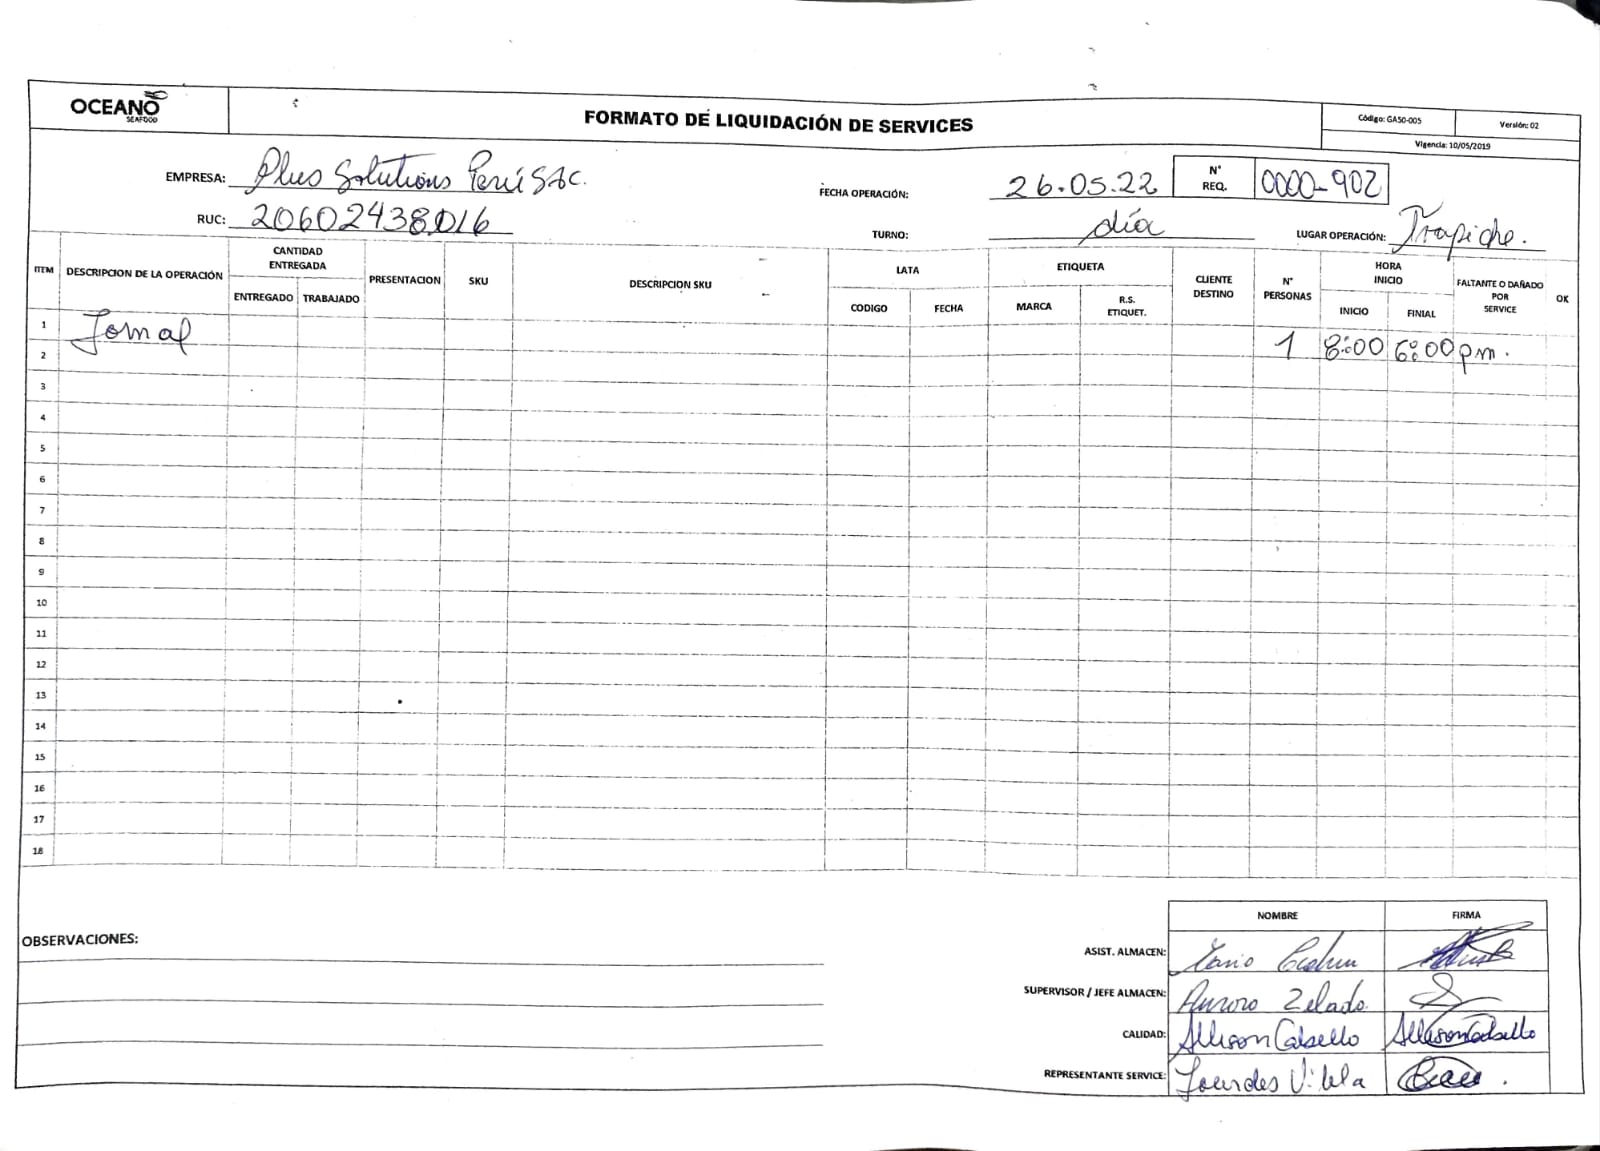 OCEANO
SEAFOOD
FORMATO DE LIQUIDACIÓN DE SERVICES
Código: GA50-005
Versión: 02
Vigencia: 10/05/2019
EMPRESA: Plus Solutions Perú SAC.
FECHA OPERACIÓN: 26.05.22
N° REQ. 0000-902
RUC: 20602438016
TURNO: día
LUGAR OPERACIÓN: Trapiche.
ITEM
DESCRIPCION DE LA OPERACIÓN
CANTIDAD ENTREGADA
ENTREGADO
TRABAJADO
PRESENTACION
SKU
DESCRIPCION SKU
LATA
CODIGO
FECHA
ETIQUETA
MARCA
R.S. ETIQUET.
CLIENTE DESTINO
N° PERSONAS
HORA INICIO
INICIO
FINIAL
FALTANTE O DAÑADO POR SERVICE
OK
1 Jornal 1 8:00 6:00 pm.
2
3
4
5
6
7
8
9
10
11
12
13
14
15
16
17
18
OBSERVACIONES:
NOMBRE
FIRMA
ASIST. ALMACEN:
SUPERVISOR / JEFE ALMACEN: Aurora Zelada
CALIDAD: Allison
REPRESENTANTE SERVICE: Lourdes Vilela